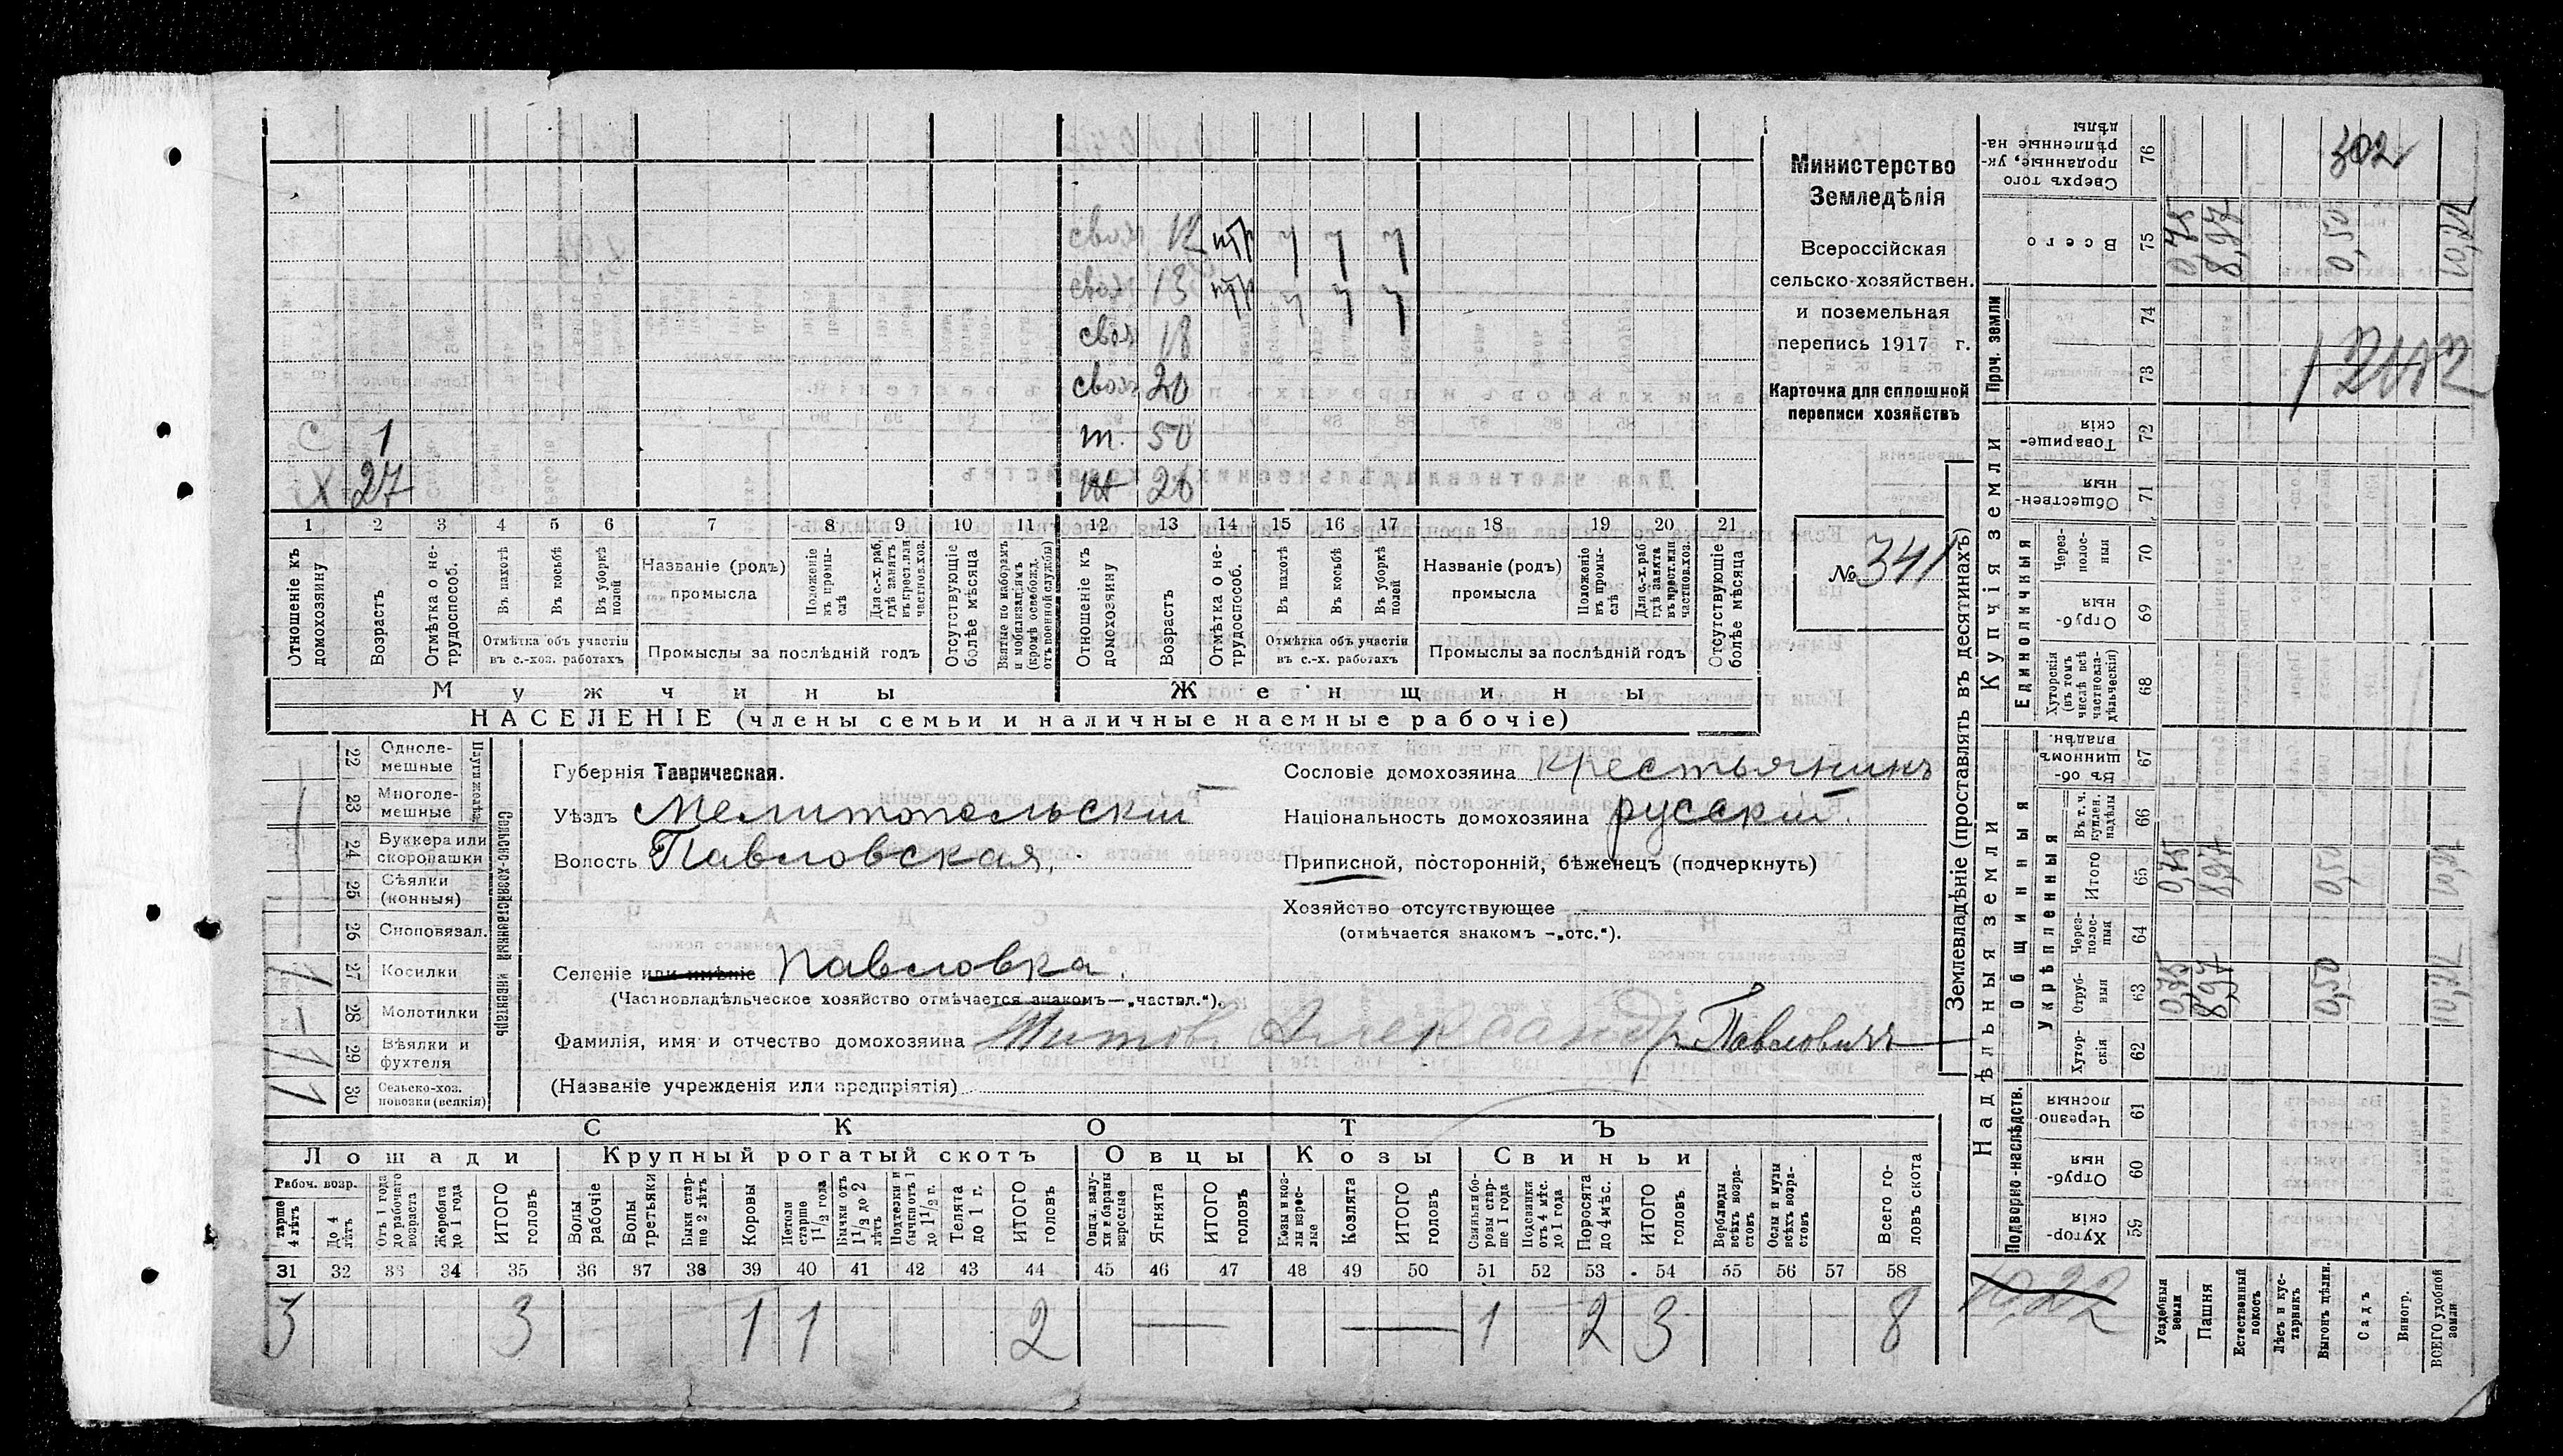 302
свох 12 н/р 7 7 7
свох 13 н/р 7 7 7
свох 18
свох 20
С 1 т. 50
Х 27
1 2 3 4 5 6 7 8 9 10 11 12 13 14 15 16 17 18 19 20 21
Отношеніе къ домохозяину
Возрастъ
Отмѣтка о не-трудоспособ.
Въ пахотѣ
Въ косьбѣ
Въ уборкѣ полей
Отмѣтка объ участіи въ с.-хоз. работахъ
Названіе (родъ) промысла
Положеніе въ промы-слѣ
Для с.-х. раб. гдѣ занятъ въ крест. или частнов. хоз.
Промыслы за послѣдній годъ
Отсутствующіе болѣе мѣсяца
Взятые по наборамъ и мобилизаціямъ (кромѣ освобожд. отъ военной службы)
Отношеніе къ домохозяину
Возрастъ
Отмѣтка о не-трудоспособ.
Въ пахотѣ
Въ косьбѣ
Въ уборкѣ полей
Отмѣтка объ участіи въ с.-х. работахъ
Названіе (родъ) промысла
Положеніе въ промы-слѣ
Для с.-х. раб. гдѣ занята въ крест. или частнов. хоз.
Промыслы за послѣдній годъ
Отсутствующіе болѣе мѣсяца
Мужчины Женщины
НАСЕЛЕНІЕ (члены семьи и наличные наемные рабочіе)
Министерство
Земледѣлія
Всероссійская
сельско-хозяйствен.
и поземельная
перепись 1917 г.
Карточка для сплошной
переписи хозяйствъ
№ 341
22 Однолемешные
23 Многолемешные
Плуги желѣз.
24 Буккера или скоропашки
25 Сѣялки (конныя)
26 Сноповязал.
27 Косилки 1
28 Молотилки –
29 Вѣялки и фухтеля 1
30 Сельско-хоз. повозки (всякія) 1
Сельско-хозяйственный инвентарь
Губернія Таврическая.
Уѣздъ Мелитопольскій
Волость Павловская,
Селеніе или имѣніе Павловка.
(Частновладѣльческое хозяйство отмѣчается знакомъ—„частвл.“).
Сословіе домохозяина крестьянинъ
Національность домохозяина русскій.
Приписной, посторонній, бѣженецъ (подчеркнуть)
Хозяйство отсутствующее
(отмѣчается знакомъ –„отс.“).
Фамилія, имя и отчество домохозяина Титов Александр Павловичъ
(Названіе учрежденія или предпріятія)
СКОТЪ
Лошади Крупный рогатый скотъ Овцы Козы Свиньи
Рабоч. возр.
старше 4 лѣтъ
До 4 лѣтъ
Отъ 1 года до рабочаго возраста
Жеребята до 1 года
ИТОГО головъ
Волы рабочіе
Волы третьяки
Быки старше 2 лѣтъ
Коровы
Нетели старше 1½ года
Бычки отъ 1½ до 2 лѣтъ
Подтелки и бычки отъ 1 до 1½ г.
Телята до 1 г.
ИТОГО головъ
Овцы, валухи и бараны взрослые
Ягнята
ИТОГО головъ
Козы и козлы взрослые
Козлята
ИТОГО головъ
Свиньи и боровы старше 1 года
Подсвинки отъ 4 мѣс. до 1 года
Поросята до 4 мѣс.
ИТОГО головъ
Верблюды всѣхъ возрастовъ
Ослы и мулы всѣхъ возрастовъ
Всего головъ скота
31 32 33 34 35 36 37 38 39 40 41 42 43 44 45 46 47 48 49 50 51 52 53 54 55 56 57 58
3 3 1 1 2 — — 1 2 3 8
Землевладѣніе (проставлять въ десятинахъ)
Надѣльныя земли Купчія земли Проч. земли
Подворно-наслѣдств. Общинныя Единоличныя
Укрѣпленныя
Хуторскія 59
Отрубныя 60
Черезполосныя 61
Хуторскія 62
Отрубныя 63
Черезполосныя 64
Итого 65
Въ т. ч. куплен. надѣлы 66
Въ общинномъ владѣн. 67
Хуторскія (въ томъ числѣ всѣ частновладѣльческія) 68
Отрубныя 69
Черезполосныя 70
Общественныя 71
Товарищескія 72
73
74
Всего 75
Сверхъ того проданные, укрѣпленные надѣлы 76
Усадебныя земли
Пашня
Естественный покосъ
Лѣсъ и кустарникъ
Выгонъ цѣлин.
Садъ
Виногр.
ВСЕГО удобной земли
0,75 8,97 0,50 10,22
0,75 8,97 0,50 10,22
0,75 8,97 0,50 10,22
10,22